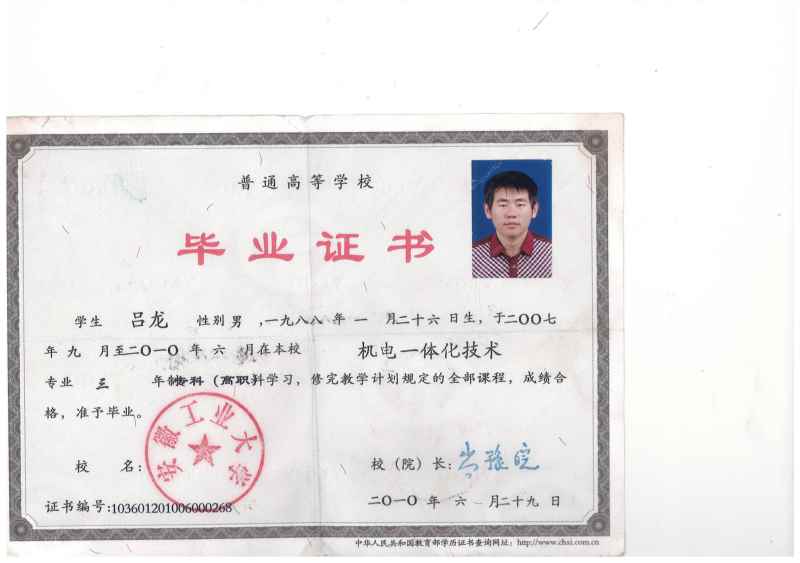 普通高等学校
毕业证书
学生 吕龙 性别 男 ,一九八八 年 一 月二十六 日生，于二〇〇七
年 九 月至二〇一〇 年 六 月在本校 机电一体化技术
专业 三 年制专科（高职）科学习，修完教学计划规定的全部课程，成绩合
格，准予毕业。
安徽工业大学
校 名： 校（院）长：
证书编号:103601201006000268 二〇一〇 年 六 月二十九 日
中华人民共和国教育部学历证书查询网址：http://www.chsi.com.cn